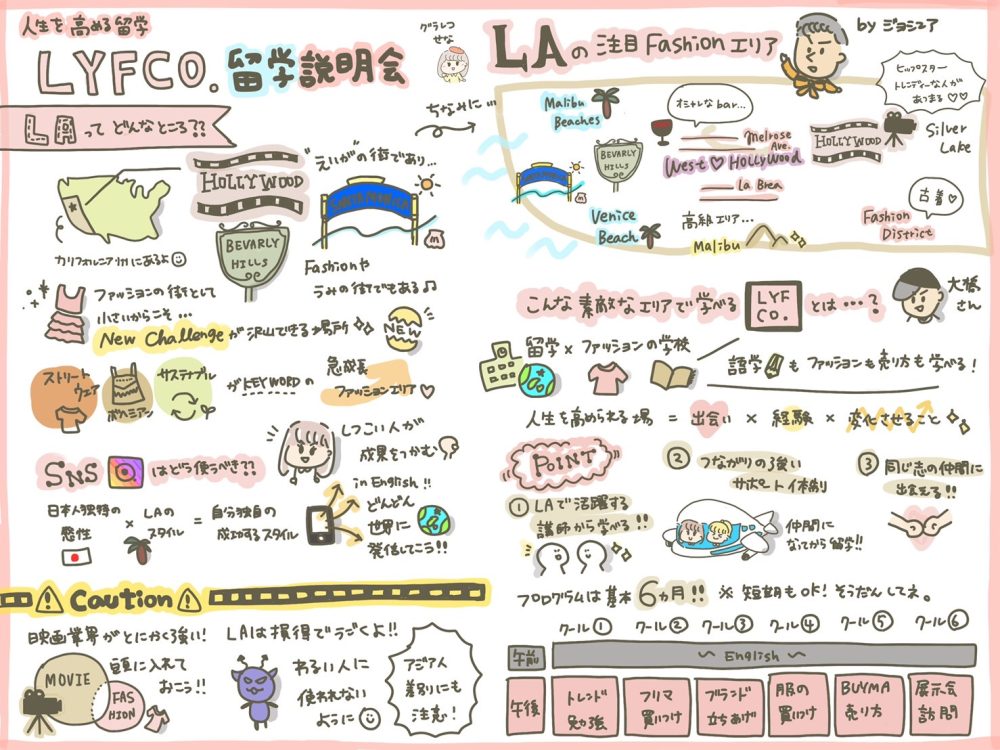 人生を高める留学
LYFCO.留学説明会
グラレコ
せな
LAってどんなところ??
HOLLYWOOD
"えいが"の街であり…
SANTA MONICA
カリフォルニア州にあるよ
BEVARLY
HILLS
Fashionや
うみの街でもある♫
ファッションの街として
小さいからこそ…
New Challengeが沢山できる場所
NEW
ストリート
ウェア
ボヘミアン
サステナブル
がKEYWORDの
急成長
ファッションエリア♡
SNSはどう使うべき??
しつこい人が
成果をつかむ
日本人独特の
感性
×
LAの
スタイル
=
自分独自の
成功するスタイル
in English!!
どんどん
世界に
発信してこう!!
⚠Caution⚠
映画業界がとにかく強い!
頭に入れて
おこう!!
MOVIE
FAS
HION
LAは損得でうごくよ!!
わるい人に
使われない
ように
アジア人
差別にも
注意!
ちなみに…
LAの注目Fashionエリア
by ジョシュア
ヒップスター
トレンディーな人が
あつまる♡♡
Malibu
Beaches
オシャレなbar…
Melrose
Ave.
HOLLYWOOD
Silver
Lake
BEVARLY
HILLS
West♡HOLLYWOOD
La Brea
SANTA MONICA
古着♡
Venice
Beach
高級エリア…
Malibu
Fashion
District
こんな素敵なエリアで学べる
LYF
CO.
とは…?
大橋
さん
留学×ファッションの学校
語学もファッションも売り方も学べる!
人生を高められる場 = 出会い × 経験 × 変化させること
POINT
①LAで活躍する
講師から学べる!!
②つながりの強い
サポート体制
仲間に
なってから留学!!
③同じ志の仲間に
出会える!!
プログラムは基本6ヵ月!! ※短期もOK! そうだんしてネ。
クール① クール② クール③ クール④ クール⑤ クール⑥
午前 〜 English 〜
午後
トレンド
勉強
フリマ
買いつけ
ブランド
立ちあげ
服の
買いつけ
BUYMA
売り方
展示会
訪問